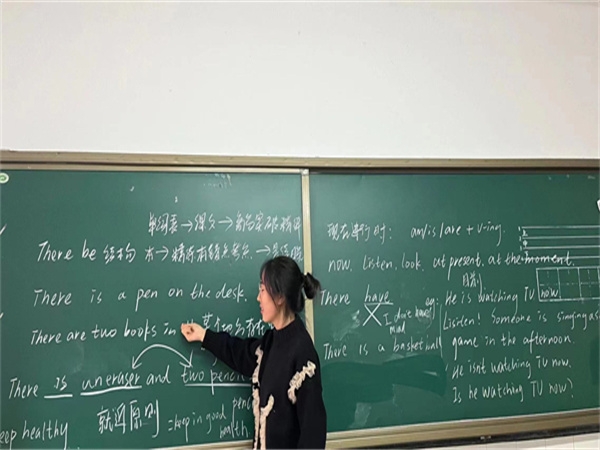 There be 结构
There is a pen on the desk.
There are two books in
There is uneraser and two penc
就近原则
=keep in good
health.
eep healthy
现在进行时: am/is/are + v-ing.
now. Listen, look. at present, at the moment,
There have
I don't
eg: He is watching TV now
Listen! Someone is singing a s
There is a basketball game in the afternoon.
He isn't watching TV now.
Is he watching TV now?